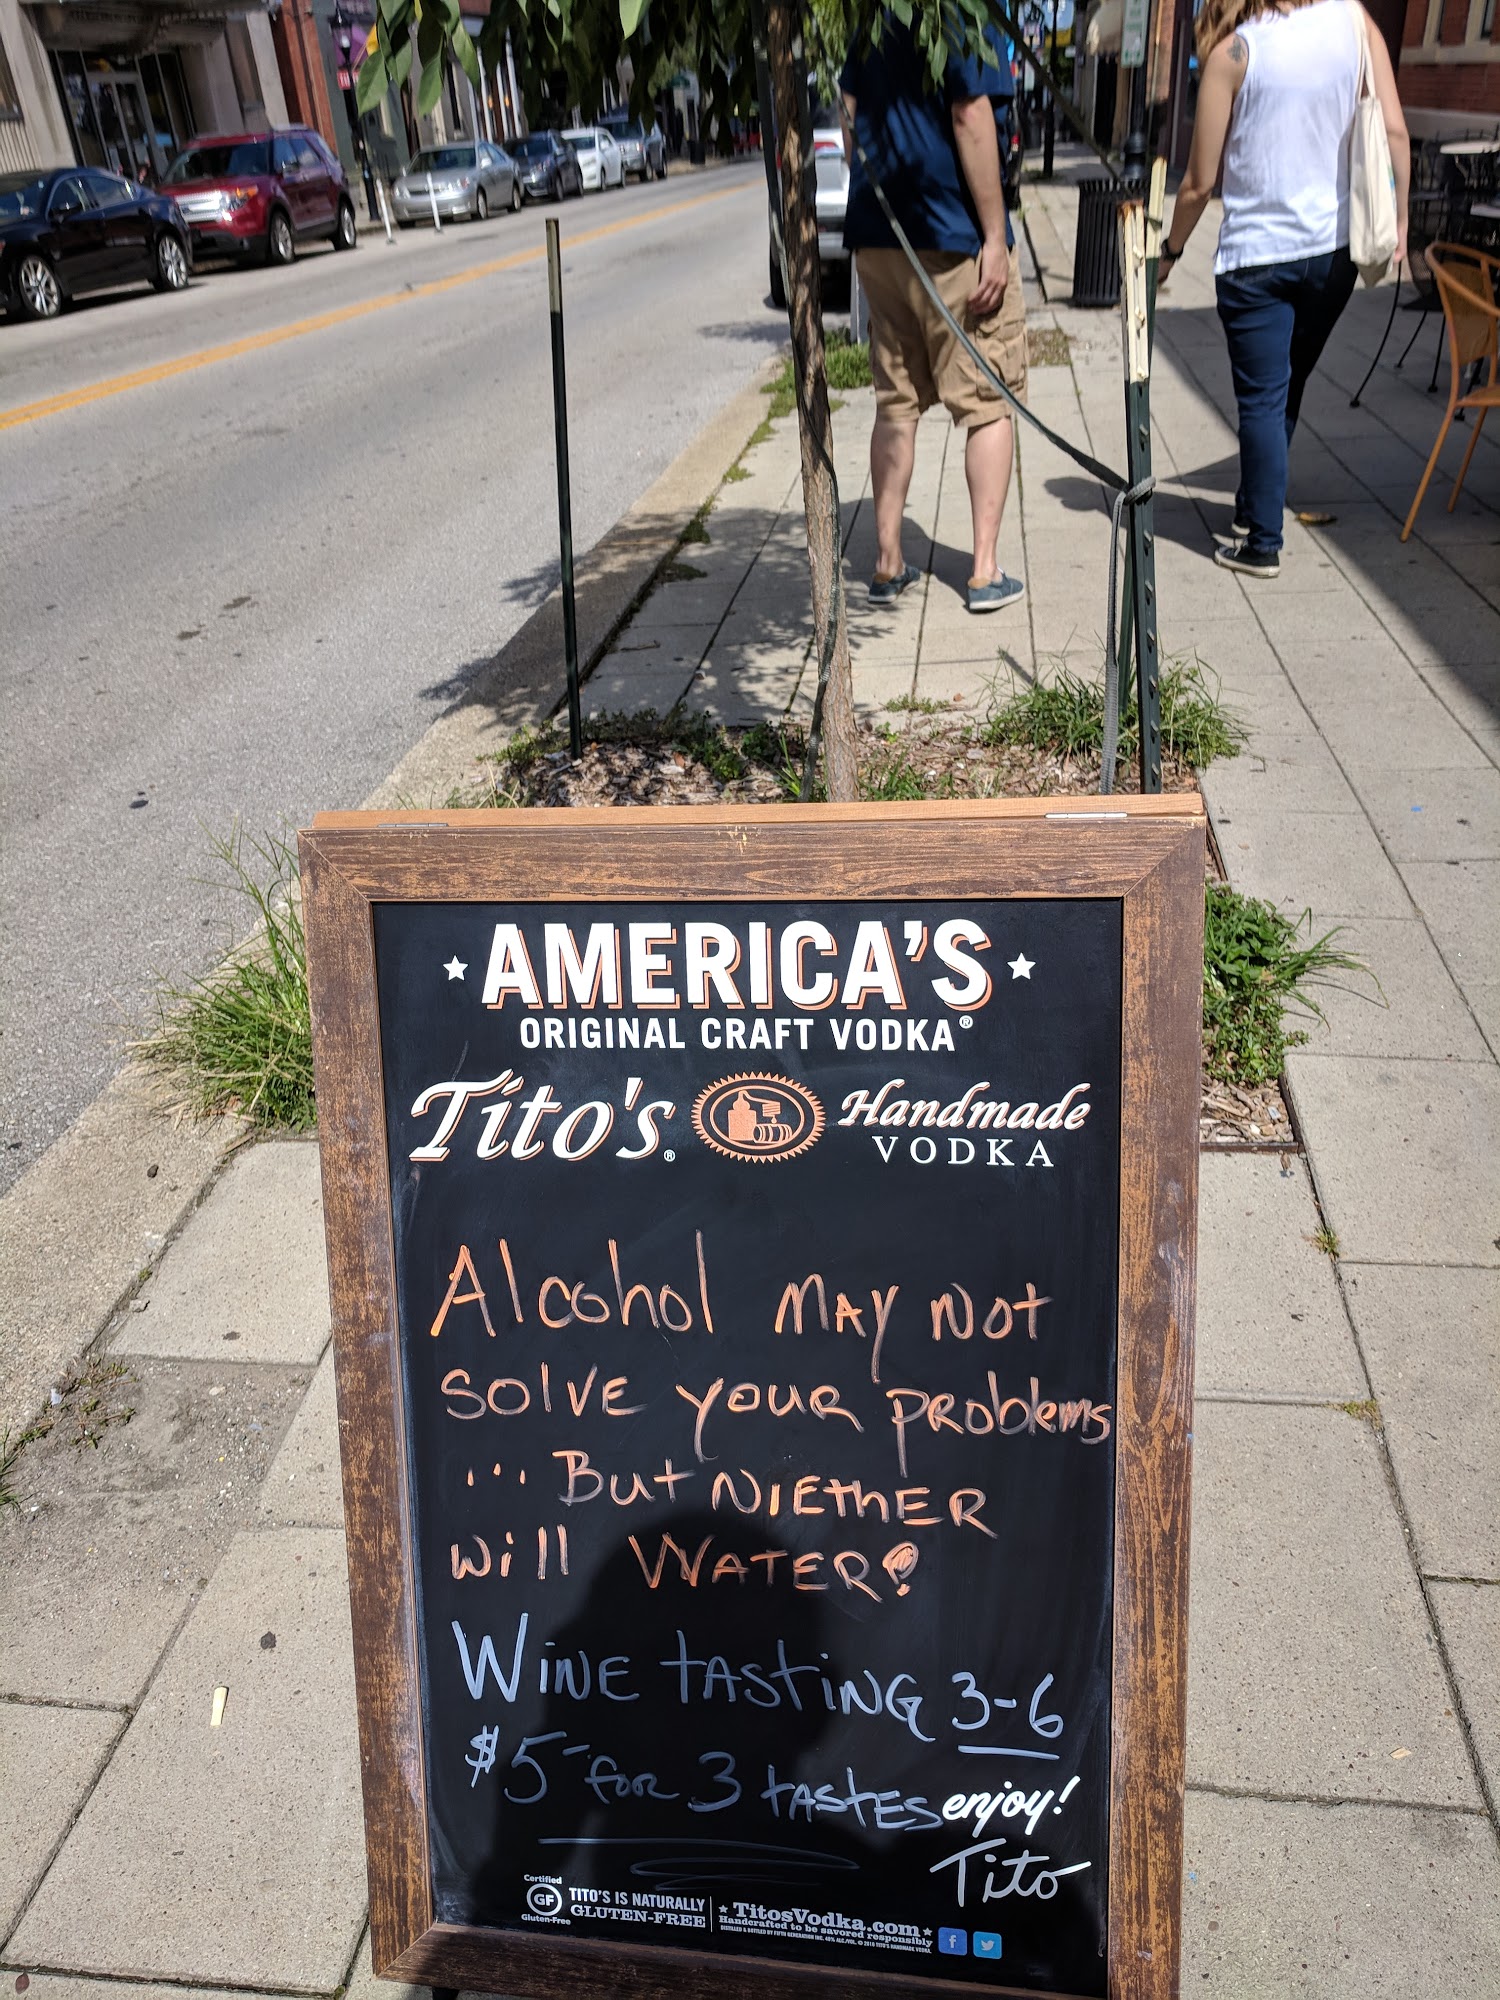 AMERICA'S
ORIGINAL CRAFT VODKA®
Tito's® Handmade
VODKA
Alcohol MAY NOT
SOLVE YOUR PROBLEMS
... But NIETHER
Will WATER!
WINE TASTING 3-6
$5- for 3 TASTES
enjoy!
Tito
Certified
GF
Gluten-Free
TITO'S IS NATURALLY
GLUTEN-FREE
TitosVodka.com
Handcrafted to be savored responsibly